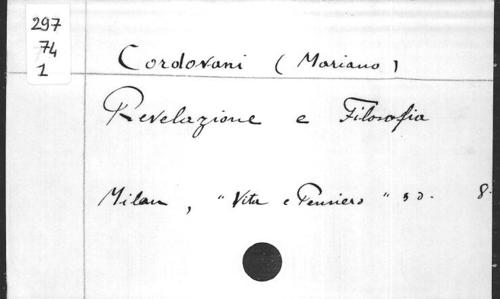 297
74
1
Cordovani (Mariano)
Revelazione e Filosofia
Milan, "Vita e Pensiero" s d. 8